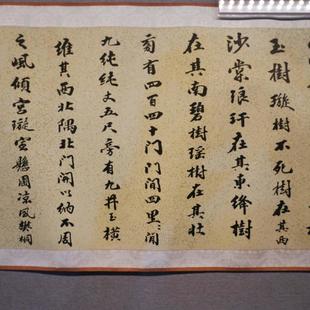 玉樹璇樹不死樹在其西
沙棠琅玕在其東絳樹
在其南碧樹瑤樹在其北
旁有四百四十門門間四里〻間
九純純丈五尺旁有九井玉橫
維其西北隅北門開以納不周
之風傾宮璇室懸圃涼風樊桐